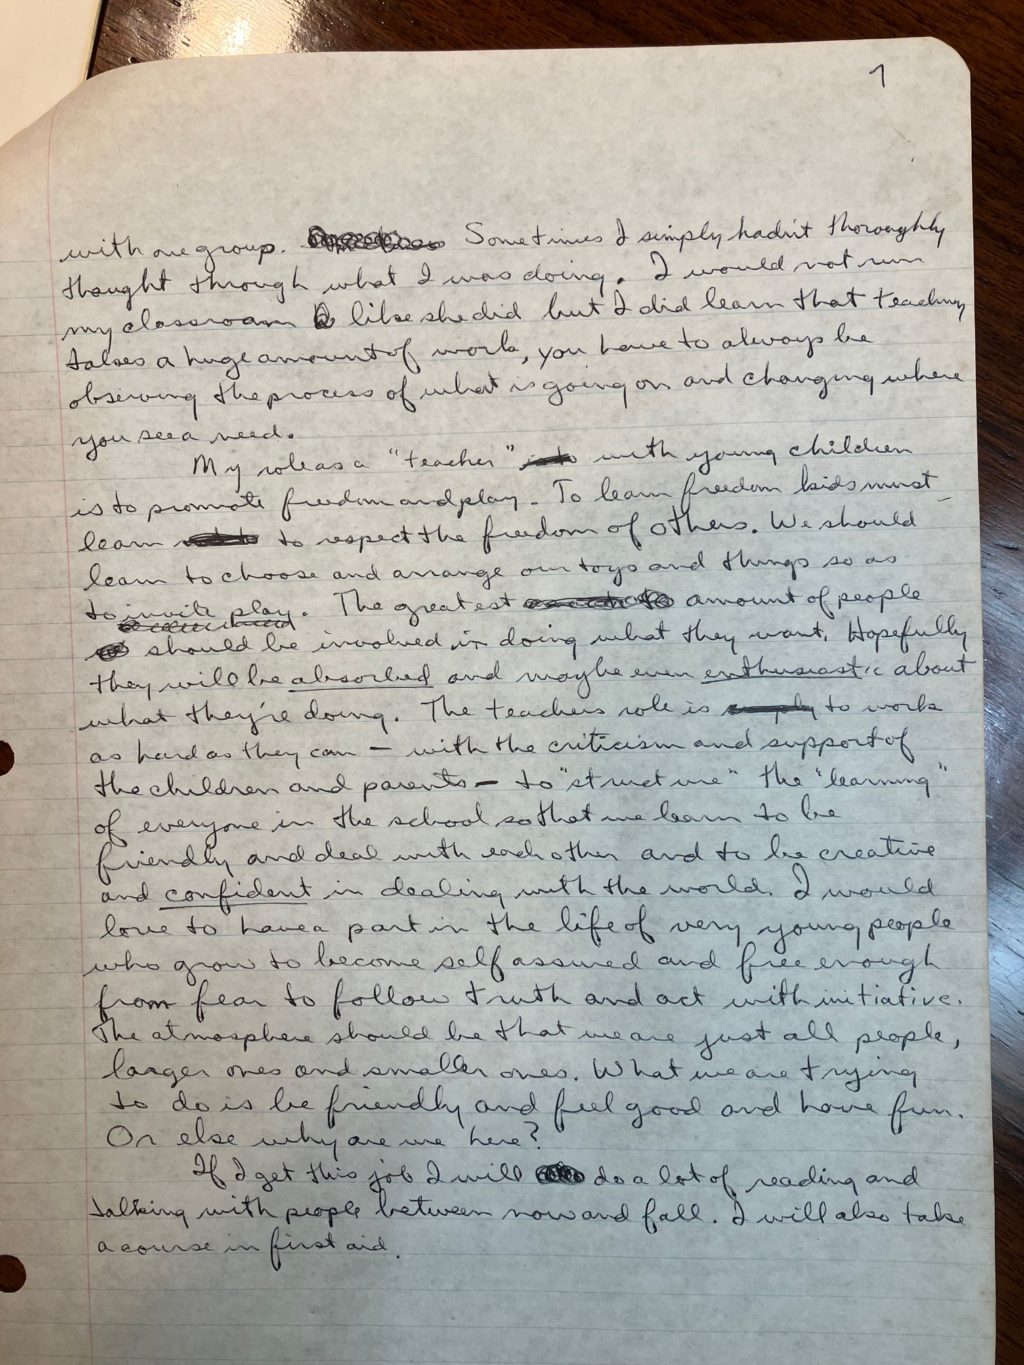 7
with one group. Sometimes I simply hadn't thoroughly
thought through what I was doing. I would not run
my classroom like she did but I did learn that teaching
takes a huge amount of work, you have to always be
observing the process of what is going on and changing where
you see a need.
My role as a "teacher" with young children
is to promote freedom and play. To learn freedom kids must
learn to respect the freedom of others. We should
learn to choose and arrange our toys and things so as
to invite play. The greatest amount of people
should be involved in doing what they want. Hopefully
they will be absorbed and maybe even enthusiastic about
what they're doing. The teachers role is simply to work
as hard as they can – with the criticism and support of
the children and parents – to "structure" the "learning"
of everyone in the school so that we learn to be
friendly and deal with each other and to be creative
and confident in dealing with the world. I would
love to have a part in the life of very young people
who grow to become self assured and free enough
from fear to follow truth and act with initiative.
The atmosphere should be that we are just all people,
larger ones and smaller ones. What we are trying
to do is be friendly and feel good and have fun.
Or else why are we here?
If I get this job I will do a lot of reading and
talking with people between now and fall. I will also take
a course in first aid.